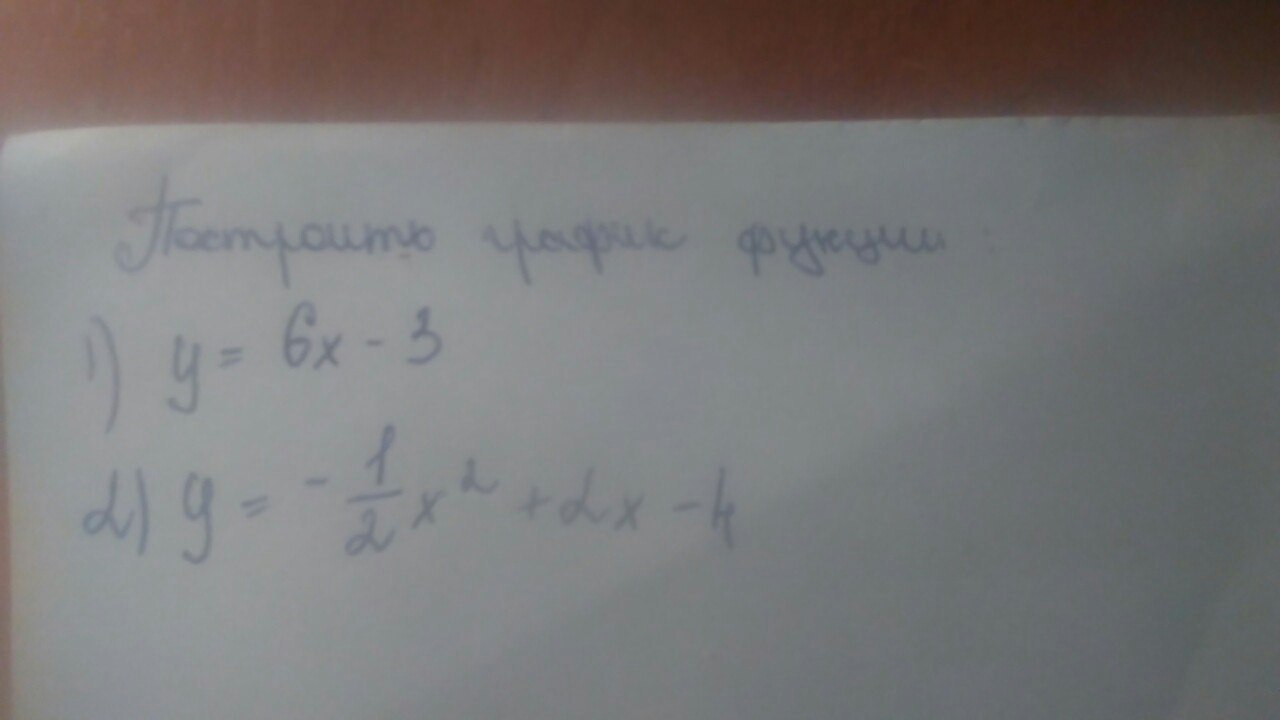 Построить график фукции:
1) y = 6x - 3
2) y = - 1/2 x² + 2x - 4